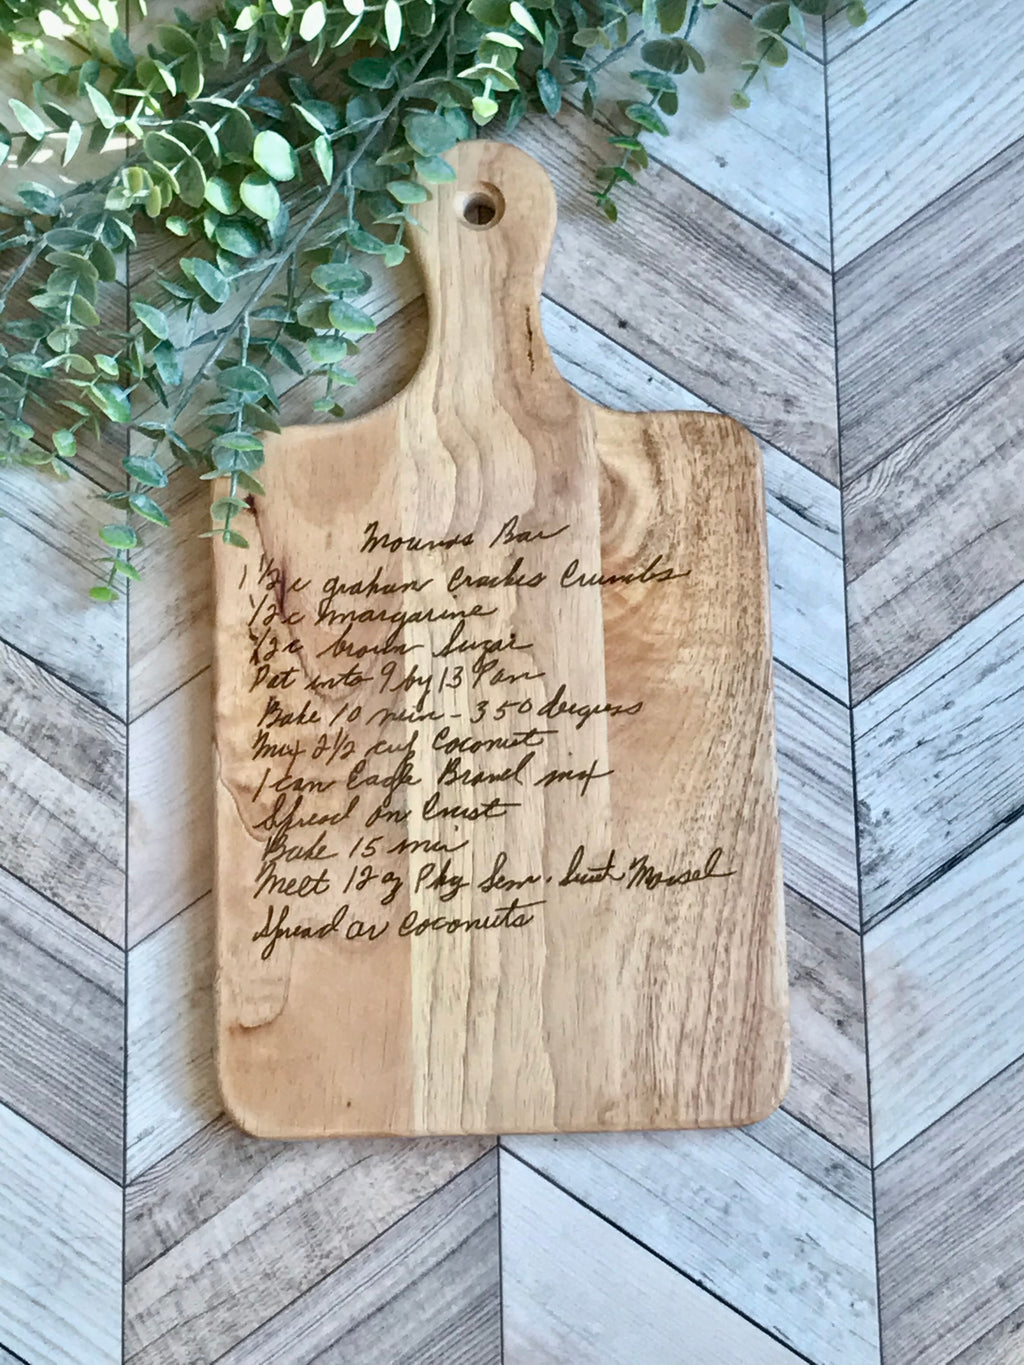 Mounds Bar
1 1/2 c graham Crackers Crumbs
1/2 c margarine
1/2 c brown Sugar
Pat into 9 by 13 Pan
Bake 10 min - 350 degrees
Mix 2 1/2 cup Coconut
1 can Eagle Brand mix
Spread on Crust
Bake 15 min
Melt 12 oz Pkg Semi. Sweet Morsel
Spread on Coconuts